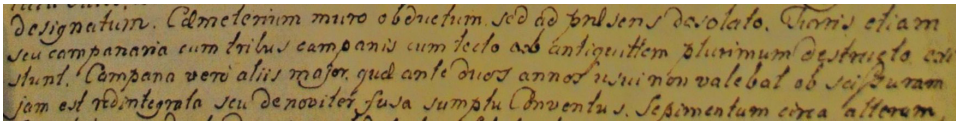 designatum. Cæmeterium muro obductum sed ad præsens desolato. Turris etiam
seu campanaria cum tribus campanis cum tecto ob antiquittem plurimum destructo exi
stunt. Campana veri aliis major, quæ ante duos annos usui non valebat ob scissuram
jam est redintegrata seu de noviter fusa sumptu Conventus. Sepimentum circa alteram,